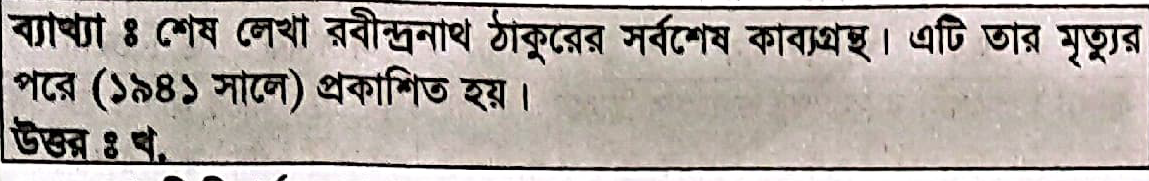 ব্যাখ্যা ঃ শেষ লেখা রবীন্দ্রনাথ ঠাকুরের সর্বশেষ কাব্যগ্রন্থ। এটি তার মৃত্যুর
পরে (১৯৪১ সালে) প্রকাশিত হয়।
উত্তর ঃ খ.